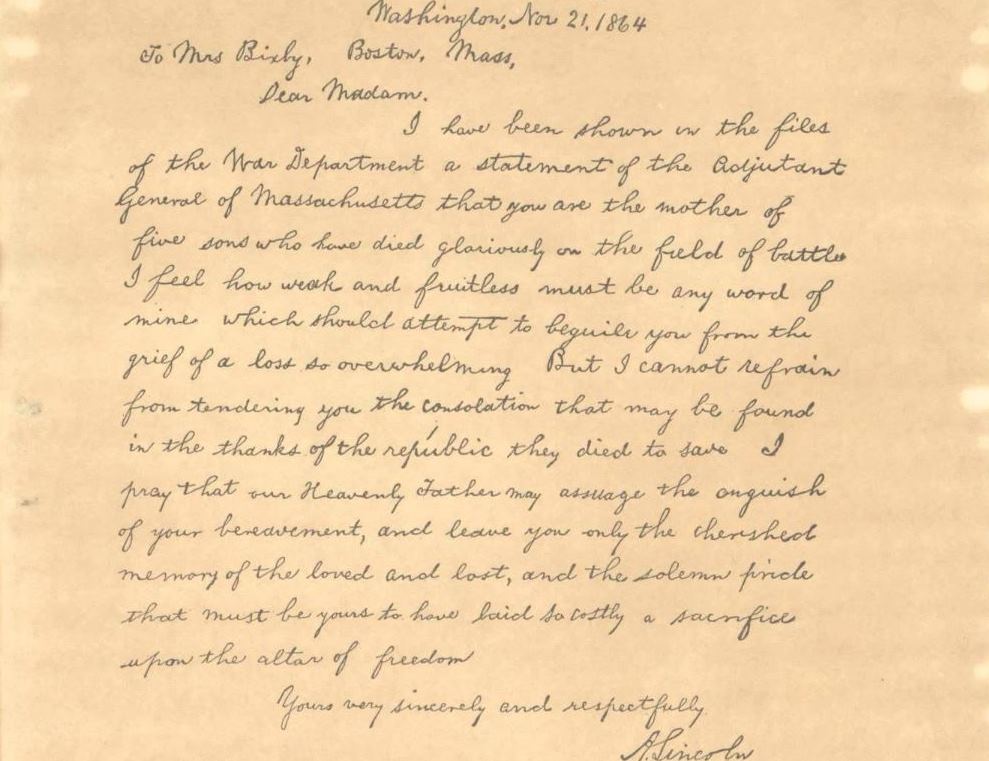 Washington, Nov 21, 1864
To Mrs Bixby, Boston, Mass,
Dear Madam.
I have been shown in the files
of the War Department a statement of the Adjutant
General of Massachusetts that you are the mother of
five sons who have died gloriously on the field of battle
I feel how weak and fruitless must be any word of
mine which should attempt to beguile you from the
grief of a loss so overwhelming But I cannot refrain
from tendering you the consolation that may be found
in the thanks of the republic they died to save I
pray that our Heavenly Father may assuage the anguish
of your bereavement, and leave you only the cherished
memory of the loved and lost, and the solemn pride
that must be yours to have laid so costly a sacrifice
upon the altar of freedom
Yours very sincerely and respectfully.
A. Lincoln